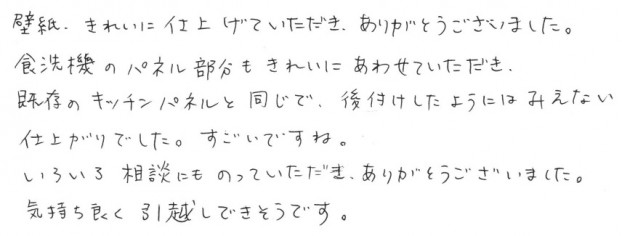 壁紙、きれいに仕上げていただき、ありがとうございました。
食洗機のパネル部分もきれいにあわせていただき、
既存のキッチンパネルと同じで、後付けしたようにはみえない
仕上がりでした。すごいですね。
いろいろ相談にものっていただき、ありがとうございました。
気持ち良く引越しできそうです。